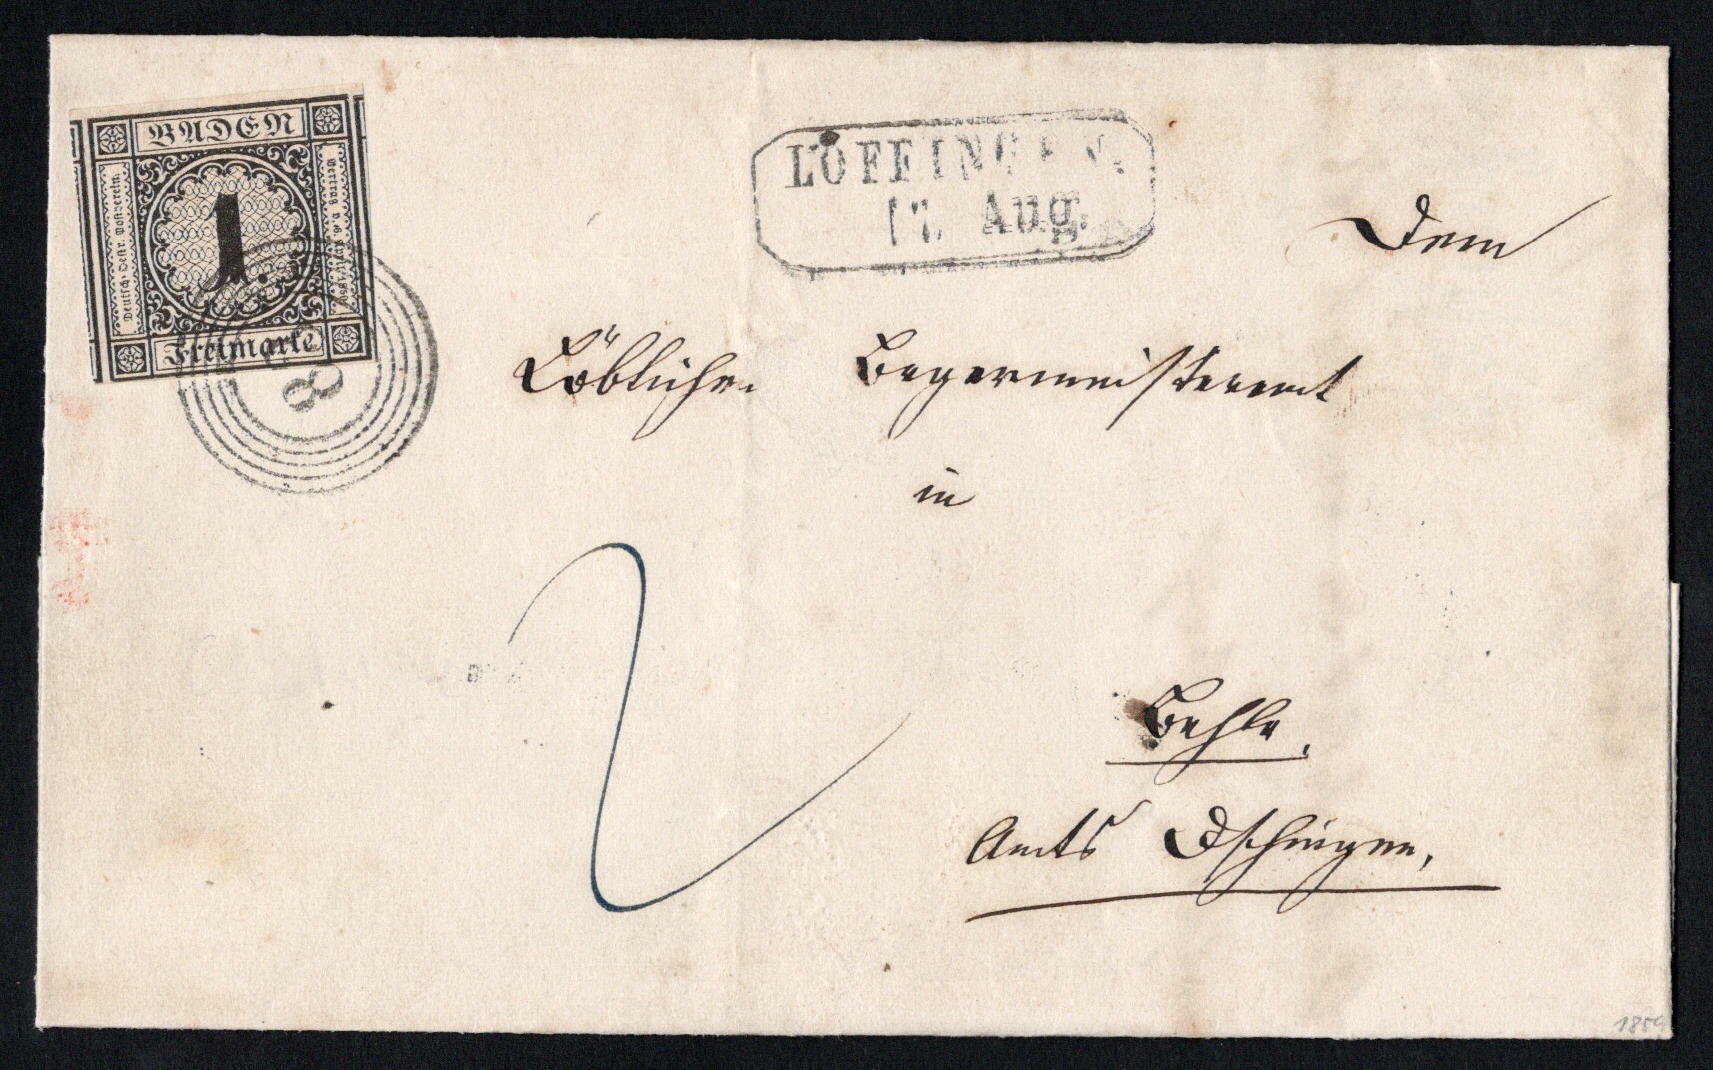 BADEN
Deutsch-Oestr. Postverein
Vertrag v. 6. April 1850
1.
Freimarke
8
LÖFFINGEN.
17. Aug.
Dem
Löblichen Burgermeisteramt
in
2
Amts
1859